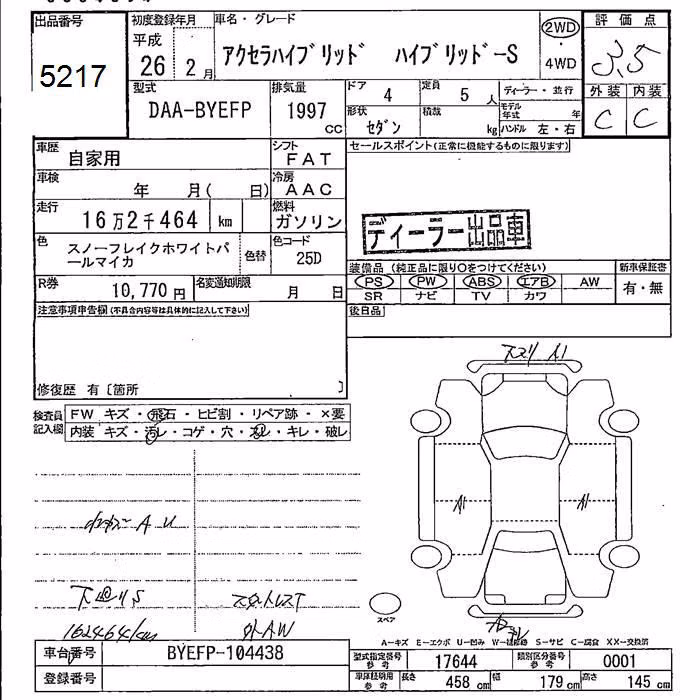 出品番号
5217
初度登録年月
平成
26 2月
車名・グレード
アクセラハイブリッド ハイブリッド-S
2WD
・
4WD
評価点
3.5
外装 内装
C C
型式
DAA-BYEFP
排気量
1997
cc
ドア
4
定員
5 人
ディーラー・並行
モデル年式 年
形状
セダン
積載
kg
ハンドル 左・右
車歴
自家用
シフト
FAT
セールスポイント(正常に機能するものに限ります)
車検
年 月( 日)
冷房
AAC
走行
16万2千464 km
燃料
ガソリン
ディーラー出品車
色
スノーフレイクホワイトパ
ールマイカ
色替
色コード
25D
装備品 (純正品に限り○をつけてください)
新車保証書
R券
10,770円
名変通知期限
月 日
PS PW ABS エアB AW
SR ナビ TV カワ
有・無
注意事項申告欄(不具合内容等は具体的に記入して下さい)
後日品
修復歴 有〔箇所 〕
検査員
記入欄
FW キズ・飛石・ヒビ割・リペア跡・×要
内装 キズ・汚レ・コゲ・穴・スレ・キレ・破レ
A1
A1
A1
AU
S
162464km
外AW
スペア
A-キズ E-エクボ U-凹み W-補修跡 S-サビ C-腐食 XX-交換済
車台番号
BYEFP-104438
登録番号
型式指定番号
参考
17644
類別区分番号
参考
0001
車庫証明用
参考
長さ 458 cm 幅 179 cm 高さ 145 cm